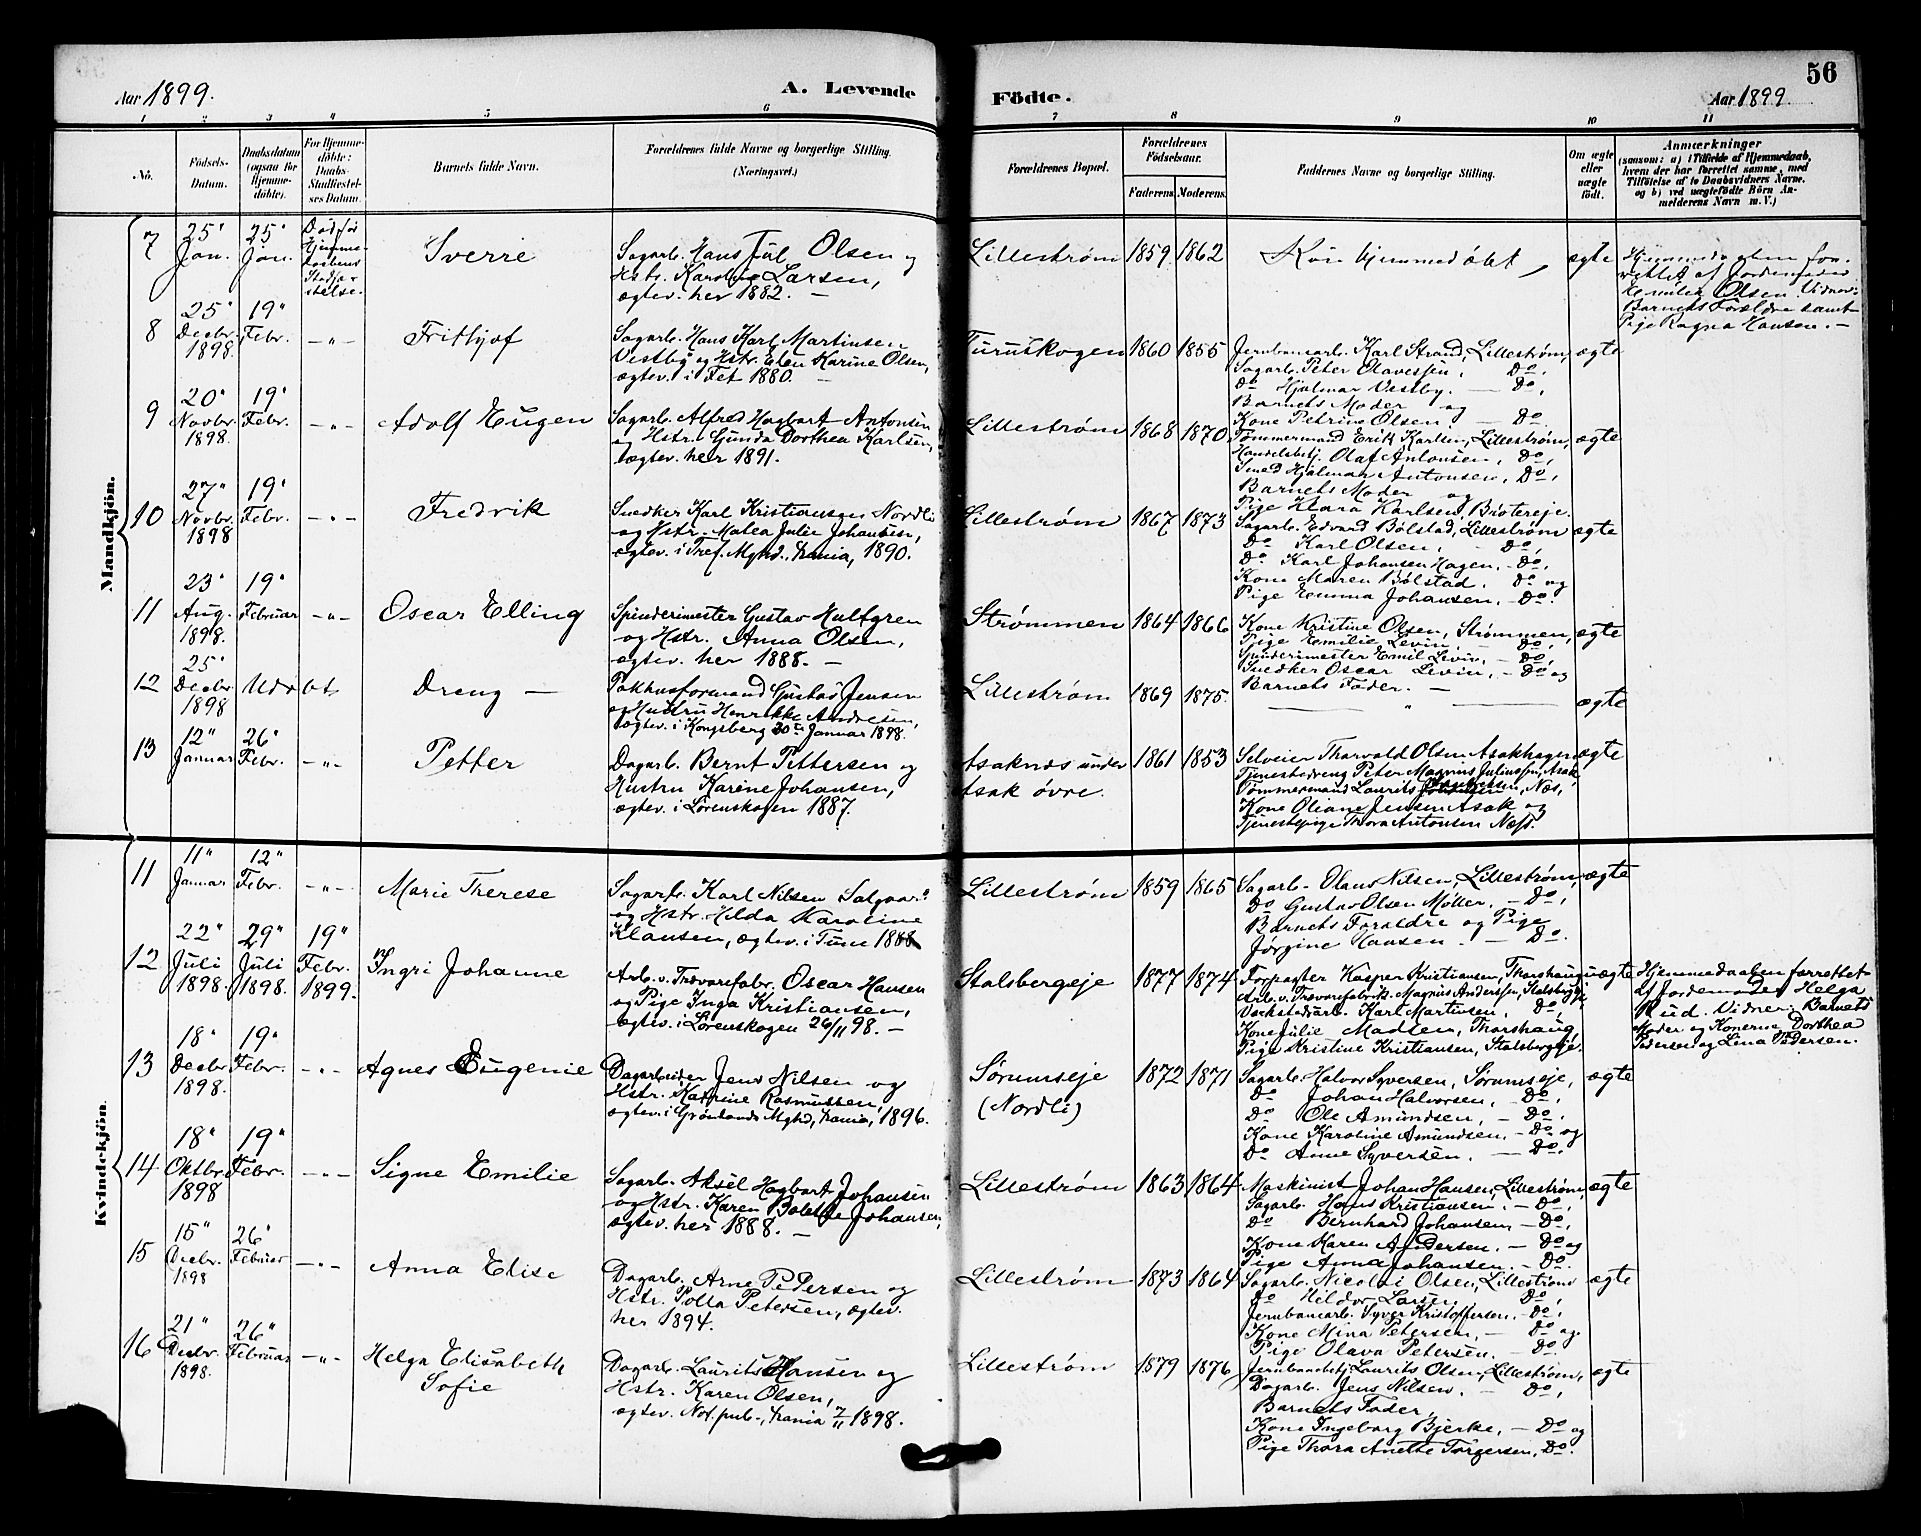 Aar 1899.
A. Levende
Födte.
56
Aar 1899
1 2 3 4 5 6 7 8 9 10 11
No.
Födsels-
Datum.
Daabsdatum
(ogsaa for
Hjemme-
döbte).
For Hjemme-
döbte:
Daabs-
Stadfæstel-
ses Datum.
Barnets fulde Navn.
Forældrenes fulde Navne og borgerlige Stilling.
(Næringsvei.)
Forældrenes Bopæl.
Forældrenes
Födselsaar.
Faderens. Moderens.
Faddernes Navne og borgerlige Stilling.
Om ægte
eller
uægte
födt.
Anmærkninger
(saasom: a) i Tilfælde af Hjemmedaab,
hvem der har forrettet samme, med
Tilföielse af to Daabsvidners Navne,
og b) ved uægtefödte Börn An-
melderens Navn m. V.)
Mandkjön.
7
25"
Jan.
25"
Jan.
Død før
Hjemme-
daabens
Stadfæ-
stelse.
Sverre
Sagarb. Hans Jul Olsen og
Hstr. Karoline Larsen,
ægtev. her 1882. —
Lillestrøm 1859 1862
Kun hjemmedøbt
ægte
Hjemmedaaben for-
rettet af Jordemoder
Emilie Olsen. Vidner:
Barnets Forældre samt
Pige Ragna Hansen. —
8
25"
Decbr.
1898.
19"
Febr.
- " -
Frithjof
Sagarb. Hans Karl Martinsen
Vestby og Hstr. Elen Karine Olsen,
ægtev. i Fet 1880. —
Furuskogen 1860 1855
Jernbanearb. Karl Strand, Lillestrøm,
Sagarb. Peter Olavessen, Do,
Do Hjalmar Vestby. — Do,
Barnets Moder og
Kone Petrine Olsen — Do
ægte
9
20"
Novbr.
1898.
19"
Febr.
- " -
Adolf Eugen
Sagarb. Alfred Hagbart Antonsen
og Hstr. Gunda Dorthea Karlsen,
ægtev. her 1891.
Lillestrøm 1868 1870
Tømmermand Erik Karlsen, Lillestrøm,
Handelsbetj. Olaf Antonsen, Do,
Smed Hjalmar Antonsen, Do,
Barnets Moder og
Pige Klara Karlsen,
ægte
10
27"
Novbr.
1898
19"
Febr.
- " -
Fredrik
Snedker Karl Kristiansen Nordli
og Hstr. Matea Julie Johansen,
ægtev. i Tref. Mghd., Krania, 1890.
Lillestrøm 1867 1873
Sagarb. Edvard Bølstad, Lillestrøm
Do Karl Olsen, - Do,
Do Karl Johansen Hagen. - Do,
Kone Maren Bølstad. Do og
Pige Emma Johansen. - Do.
ægte
11
23"
Aug.
1898.
19"
Februar
- " -
Oscar Elling
Spinderimester Gustav Hultgren
og Hstr. Anna Olsen,
ægtev. her 1888. —
Strømmen 1864 1866
Kone Kristine Olsen, Strømmen,
Pige Emilie Levin, - Do,
Spinderimester Emil Levin, - Do,
Snedker Oscar Levin, - Do og
Barnets Fader. —
ægte
12
25"
Decbr.
1898
Udøbt
Dreng —
Pakhusformand Gustav Jensen
og Hustru Henrikke Andresen,
ægtev. i Kongsberg 30te Januar 1898.
Lillestrøm 1869 1875.
— " —
ægte
13
12"
Januar
26"
Febr.
- " -
Petter
Dagarb. Bernt Pettersen og
Hustru Karine Johansen,
ægtev. i Lørenskogen 1887.
Asaknæs under
Asak øvre.
1861 1853
Selveier Tharvald Olsen Asakhagen
Tjenestedreng Peter Magnus Juliussen, Asak,
Tømmermand Laurits Næs,
Kone Oliane Jensen Asak og
Tjenestepige Thora Antonsen Næss.
ægte
Kvindekjön.
11
11"
Januar
12"
Febr.
- " -
Marie Therese
Sagarb. Karl Nilsen
og Hstr. Hilda Karoline
Klausen, ægtev. i Tune 1888
Lillestrøm 1859 1865
Sagarb. Olaus Nilsen, Lillestrøm,
Do Gustav Olsen Møller. - Do,
Barnets Forældre og Pige
Jørgine Hansen. — Do.
ægte
12
22"
Juli
1898.
29"
Juli
1898.
19"
Febr.
1899.
Ingri Johanne
Arb. v. Trævarefabr. Oscar Hansen
og Pige Inga Kristiansen,
ægtev. i Lørenskogen 26/11 98. —
Stalsbergeje 1877 1874
Forpagter Kasper Kristiansen, Thorshaug
Arb. v. Trævarefabrik. Magnus Anderssen, Stalsbgeje,
Værkstedarb. Karl Martinsen, Do,
Kone Julie Madsen, Thorshaug,
Pige Kristine Kristiansen, Stalsbergeje.
uægte
Hjemmedaaben forrettet
af Jordemoder Helga
Rud. Vidner: Barnets
Moder og Konerne Dorthea
Pedersen og Lina Pedersen.
13
18"
Decbr.
1898.
19"
Febr.
- " -
Agnes Eugenie
Dagarbeider Jens Nilsen og
Hstr. Katrine Rasmussen,
ægtev. i Grønlands Mghd, Krania, 1896.
Sørumseje
(Nordli)
1872 1871
Sagarb. Halvor Syversen, Sørumseje,
Do Johan Halvorsen, - Do,
Do Ole Amundsen, — Do,
Kone Karoline Amundsen. - Do og
Do Anne Syversen. — Do.
ægte
14
18"
Oktbr.
1898
19"
Febr.
- " -
Signe Emilie
Sagarb. Aksel Hagbart Johansen
og Hstr. Karen Bolette Johansen,
ægtev. her 1888. —
Lillestrøm 1863 1864
Maskinist Johan Hansen, Lillestrøm,
Sagarb. Hans Kristiansen. - Do,
Do Bernhard Johansen, — Do,
Kone Karen Andersen. — Do og
Pige Anna Johansen. — Do.
ægte
15
15"
Decbr.
1898
26"
Februar
- " -
Anna Elise
Dagarb. Arne Pedersen og
Hstr. Polla Petersen, ægtev.
her 1894.
Lillestrøm 1873 1864
Sagarb. Nicolai Olsen, Lillestrøm
Do Hildor Larsen Do,
Jernbanearb. Syver Kristoffersen. - Do,
Kone Mina Petersen, — Do og
Pige Olava Petersen. — Do.
ægte
16
21"
Decbr.
1898.
26"
Februar
- " -
Helga Elisabeth
Sofie
Dagarb. Laurits Hansen og
Hstr. Karen Olsen,
ægtev. Not. pub., Krania 7/11 1898.
Lillestrøm 1879 1876
Jernbanebetj. Laurits Olsen, Lillestrøm,
Dagarb. Jens Nilsen. — Do,
Barnets Fader,
Kone Ingeborg Bjerke, — Do og
Pige Thora Anette Torgersen, Do.
ægte